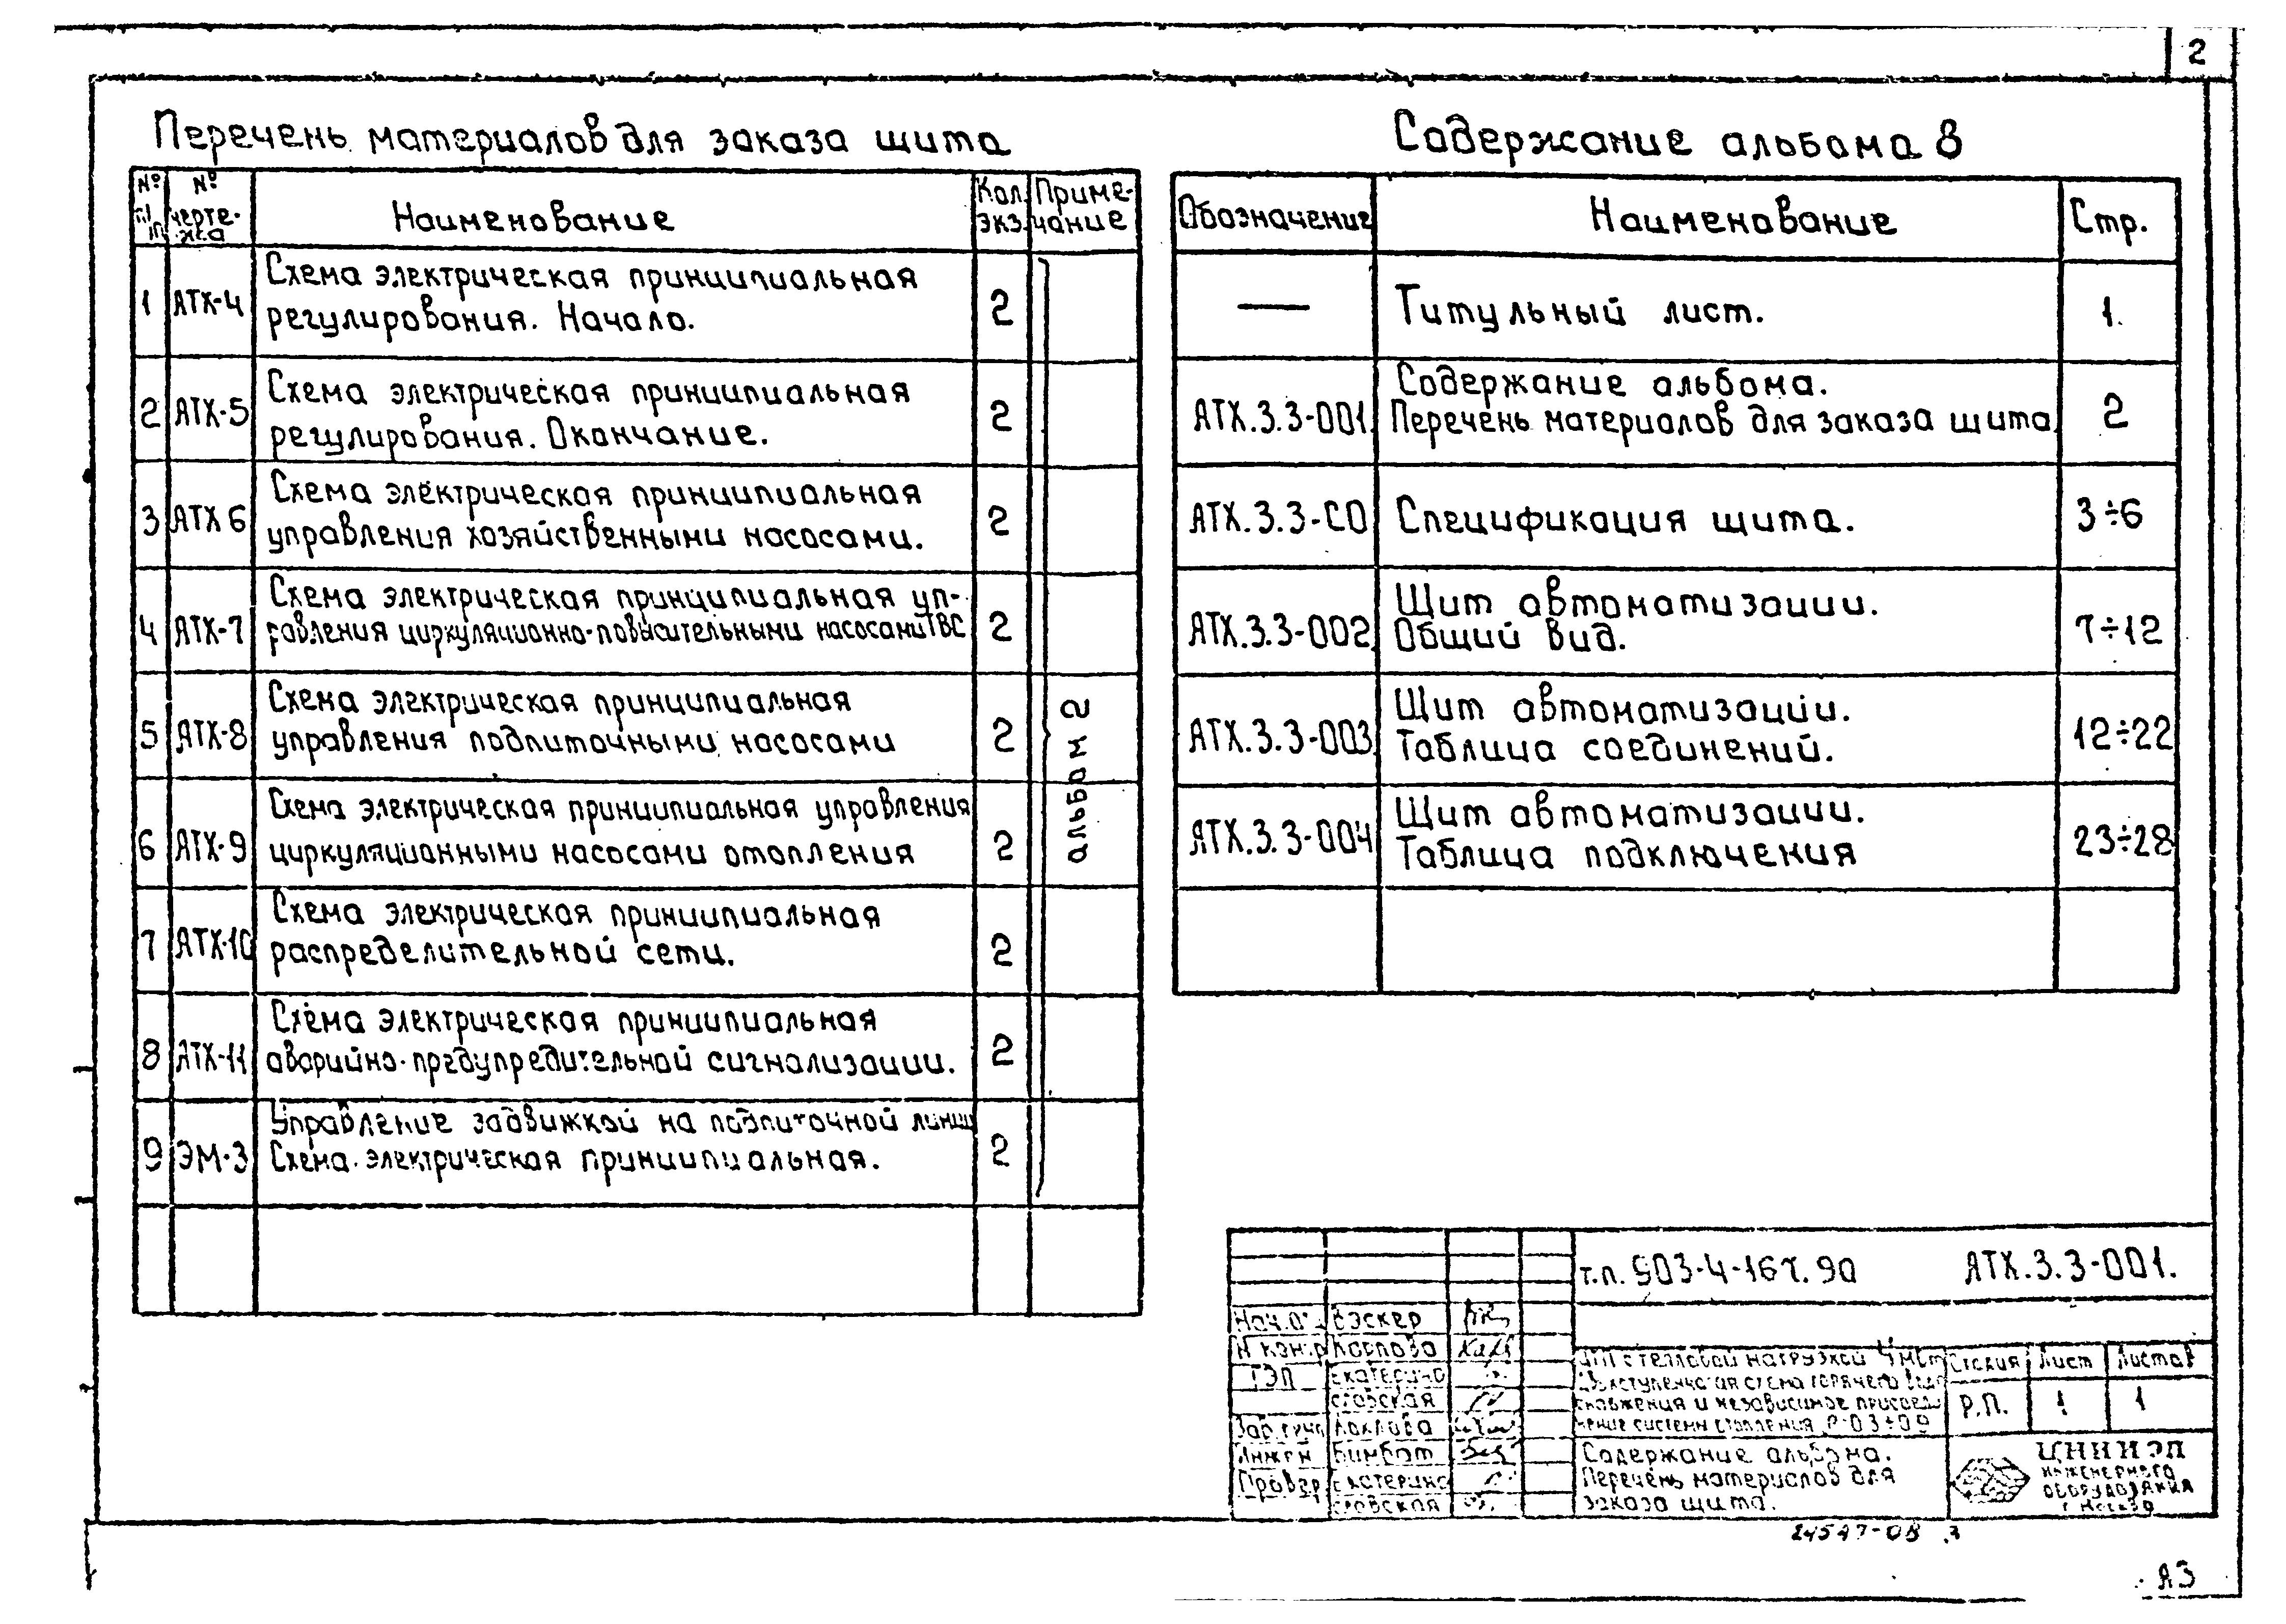 2
Перечень материалов для заказа щита
№ п/п
№ чертежа
Наименование
Кол. экз.
Примечание
1 АТХ-4 Схема электрическая принципиальная
регулирования. Начало. 2
2 АТХ-5 Схема электрическая принципиальная
регулирования. Окончание. 2
3 АТХ 6 Схема электрическая принципиальная
управления хозяйственными насосами. 2
4 АТХ-7 Схема электрическая принципиальная уп-
равления циркуляционно-повысительными насосами ГВС 2
5 АТХ-8 Схема электрическая принципиальная
управления подпиточными насосами 2
6 АТХ-9 Схема электрическая принципиальная управления
циркуляционными насосами отопления 2
7 АТХ-10 Схема электрическая принципиальная
распределительной сети. 2
8 АТХ-11 Схема электрическая принципиальная
аварийно-предупредительной сигнализации. 2
9 ЭМ-3 Управление задвижкой на подпиточной линии
Схема электрическая принципиальная. 2
альбом 2
Содержание альбома 8
Обозначение Наименование Стр.
— Титульный лист. 1.
АТХ.3.3-001 Содержание альбома.
Перечень материалов для заказа щита 2
АТХ.3.3-СО Спецификация щита. 3÷6
АТХ.3.3-002 Щит автоматизации.
Общий вид. 7÷12
АТХ.3.3-003 Щит автоматизации.
Таблица соединений. 12÷22
АТХ.3.3-004 Щит автоматизации.
Таблица подключения 23÷28
т.п. 903-4-167.90 АТХ.3.3-001.
Карпова
ГЭП Екатерино
славская
Инжен Бимбат
Провер Екатерино
славская
ЦТП с тепловой нагрузкой 4 МВт
Двухступенчатая схема горячего водо
снабжения и независимое присоеди
нение системы отопления
Стадия Лист Листов
Р.П. 1 1
Содержание альбома.
Перечень материалов для
заказа щита.
ЦНИИЭП
инженерного
оборудования
г. Москва
24547-08 3
А3